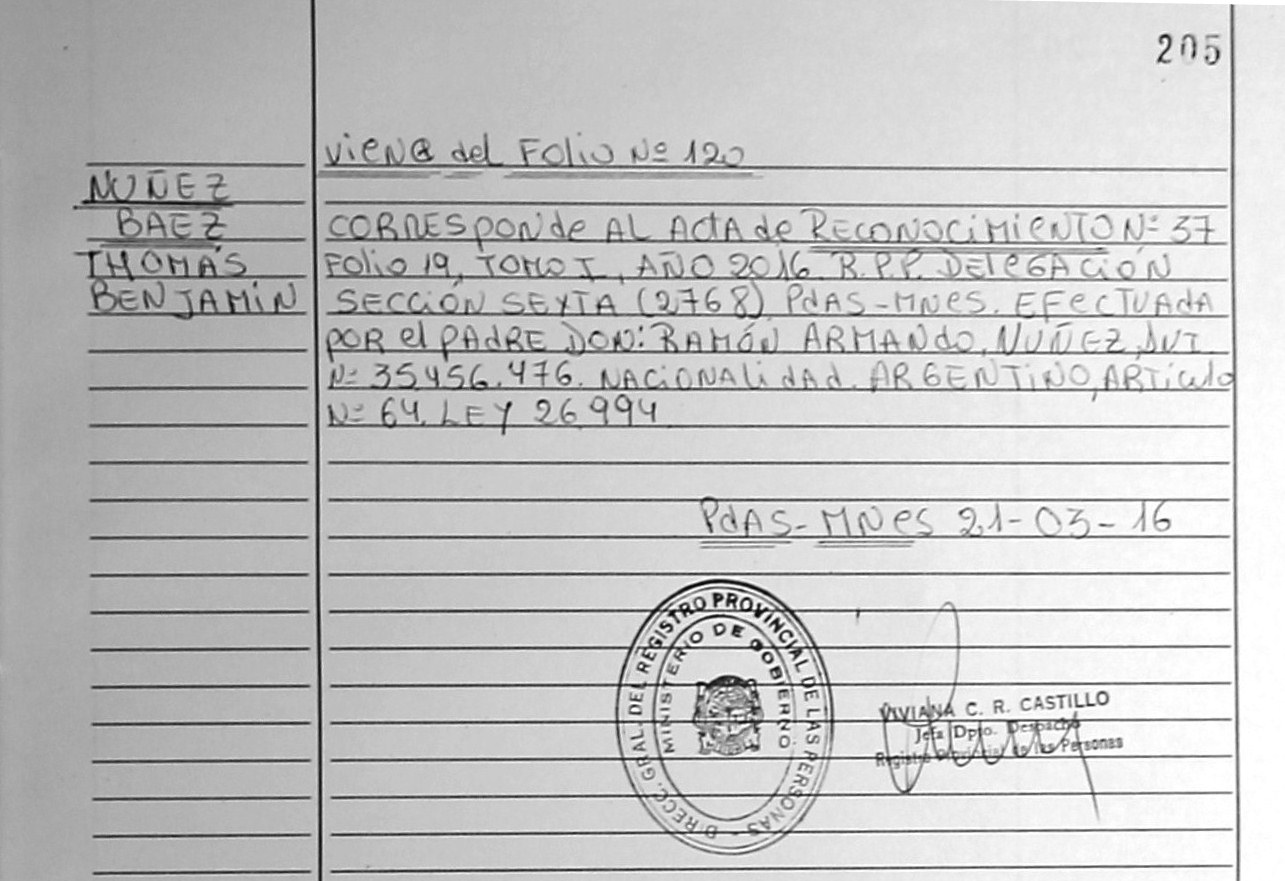 205
Viene del Folio Nº 120
NUÑEZ
BAEZ
THOMÁS
BENJAMÍN
CORRESponde AL ActA de RECONOCiMiENTO Nº 37
Folio 19, TOMO I, AÑO 2016. R.P.P. DELEGACIÓN
SECCIÓN SEXTA (2768) PdAS-MNES. EFECTUAdA
POR el PADRE DON: RAMÓN ARMANdO, NUÑEZ, DNI
Nº 35.456.476. NACIONALidAd. ARGENTINO, ARTiculo
Nº 64. LEY 26.994
PdAS-MNES 21-03-16
DIRECC. GRAL. DEL REGISTRO PROVINCIAL DE LAS PERSONAS
MINISTERIO DE GOBIERNO
VIVIANA C. R. CASTILLO
Jefa Dpto. Despacho
Registro Provincial de las Personas